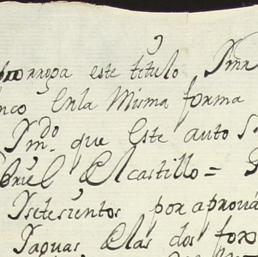 este titulo
enla Misma forma
Ymdo que Este auto
briel Elcastillo =
Ysetesientos por aproua
Yaguas Elas dos for